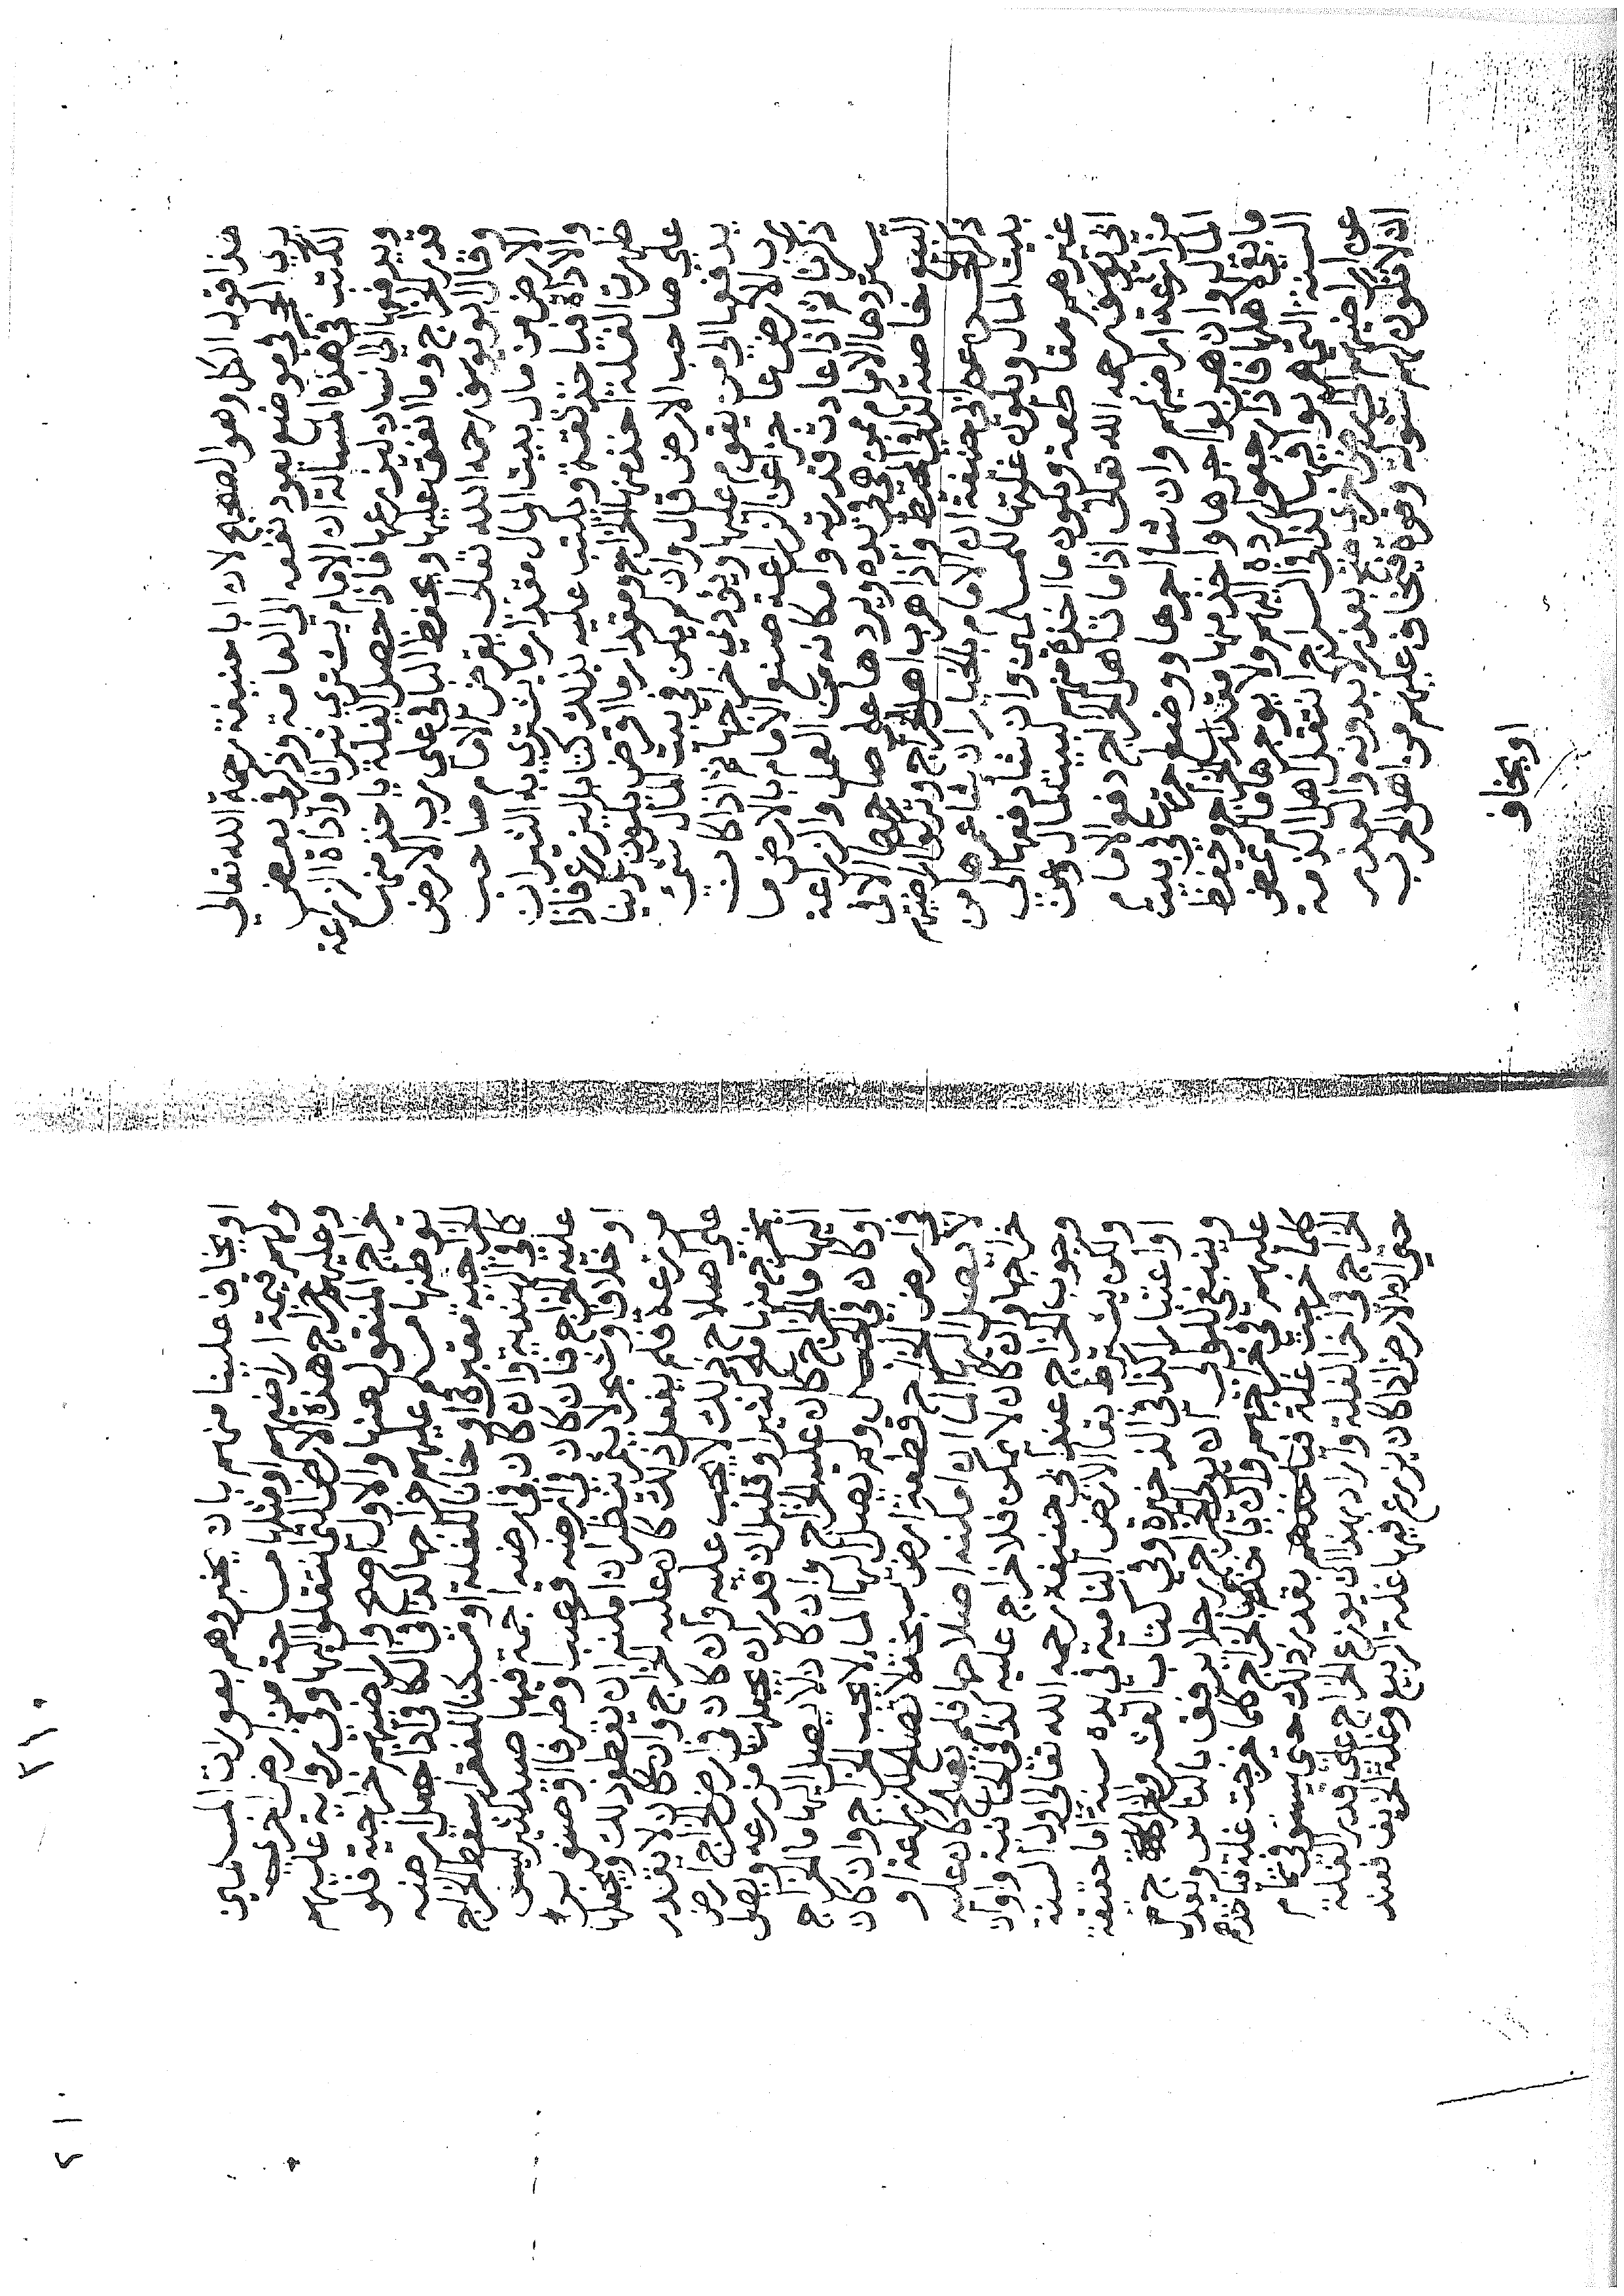 هذا قول الكل وهو الصحيح لان ابا حنيفة رحمه الله تعالى
يرى الحجر في موضع يعود نفعه الى العامة وذكر في بعض
الكتب في هذه المسالة ان الامام يشتري ثيرانا واداة الزراعة
ويدفعها الى انسان ليزرعها فاذا حصل الغلة ياخذ منها
قدر الخراج وما انفق عليها ويحفظ الباقي على رب الارض
وقال ابو يوسف رحمه الله تعالى يقرض الامام صاحب
الارض من مال بيت المال مقدار ما يشتري به الثيران
والاداة فياخذ ثقة ويكتب عليه بذلك كتابا ليزرع فاذا
ظهرت الغلة اخذ منها الخراج ومقدار ما اقرض يكون دينا
على صاحب الارض قال وان لم يكن في بيت المال شئ
يدفعها الى من يقوم عليها ويؤدي خراجها ثم اذا كان
رب الارض عاجزا عن الزراعة صنع الامام بالارض ما
ذكرنا ثم اذا عادت قدرته وامكانه من العمل والزراعة
يستردها الامام ممن هي في يده ويردها على صاحبها الا في
البيع خاصة كذا في المحيط واذا هرب اهل الخراج وتركوا اراضيهم
ذكر الحسن عن ابي حنيفة ان الامام بالخيار ان شاء عمرها من
بيت المال ويكون غلتها للمسلمين وان شاء دفعها الى
غيرهم مقاطعة ويكون ما اخذه منهم لبيت المال وعن
ابي يوسف رحمه الله تعالى اذا مات اهل الخراج دفع الامام
مزارعة اراضيهم وان شا اجرها ووضع اجرها في بيت
المال وان هربوا اجرها واخذ منها مقدار الخراج ويحفظ
ما بقي لاهلها فاذا رجعوا رده اليهم ولا يوجرها ما لم تمض
السنة التي هربوا فيها كذا في السراج انتقل اهل الذمة
عن اراضيهم الى ارض اخرى صح بعذر لا بدونه والعذر
ان لا تكون لهم شوكة وقوة فيخاف عليهم من اهل الحرب
او يخاف
او يخاف علينا منهم بان يخبروهم بعورات المسلمين
ولهم قيمة اراضيهم او مثلها مساحة من ارض اخرى
وعليهم خراج هذه الارض التي انتقلوا اليها وفي رواية عليهم
خراج المنتقل عنها والاول اصح واراضيهم خراجية فلو
توطنها مسلم عليهم خراجها كذا في الكافي اذا جعل ارضه
الخراجية مقبرة او خانا للغلة او مسكنا للفقراء سقط الخراج
وان كان في ارضه اجمة فيها صيد كثير ليس
عليه الخراج فان كان في ارضه قصب او طرفا او صنوبر
او خلاف او شجر لا يثمر ينظر ان امكنه ان يقطع ذلك ويجعلها
مزرعة فلم يفعل ذلك كان عليه الخراج وان كان لا يقدر
على اصلاح ذلك لا يجب عليه وان كان في ارض الخراج ارض
يخرج منها ملح كثيرا او قليل ان قدر ان يجعلها مزرعة ويصل
اليها ماء الخراج كان عليه الخراج وان كان لا يصل اليها ماء الخراج
او كان في الجبل ولم يصل اليها الماء لا يجب الخراج وان كان
في ارض الخراج قطعة ارض سبخة لا تصلح للزراعة او
لا يصل اليها الماء ان امكنه اصلاحها فلم يصلح كان عليه
خراجها وان كان لا يمكن فلا خراج عليه كذا في الخانية واوان
وجوب الخراج عند ابي حنيفة رحمه الله تعالى اول السنة
ولكن يشترط بقا الارض النامية في يده سنة اما حقيقة
او اعتبارا كذا في الذخيرة وفي كتاب العشر والخراج
وينبغي للوالي ان يولي الخراج رجلا يرفق بالناس ويعدل
عليهم في خراجهم وان ياخذهم بالخراج كلما خرجت غلة فياخذهم
كلما خرجت غلة فياخذهم بقدر ذلك حتى يستوفي تمام
الخراج في اخر الغلة واراد بهذا ان يوزع الخراج على قدر الغلة
حتى ان الارض اذا كان يزرع فيها غلة الربيع وغلة الخريف فعند
٢١٠
٢١٠